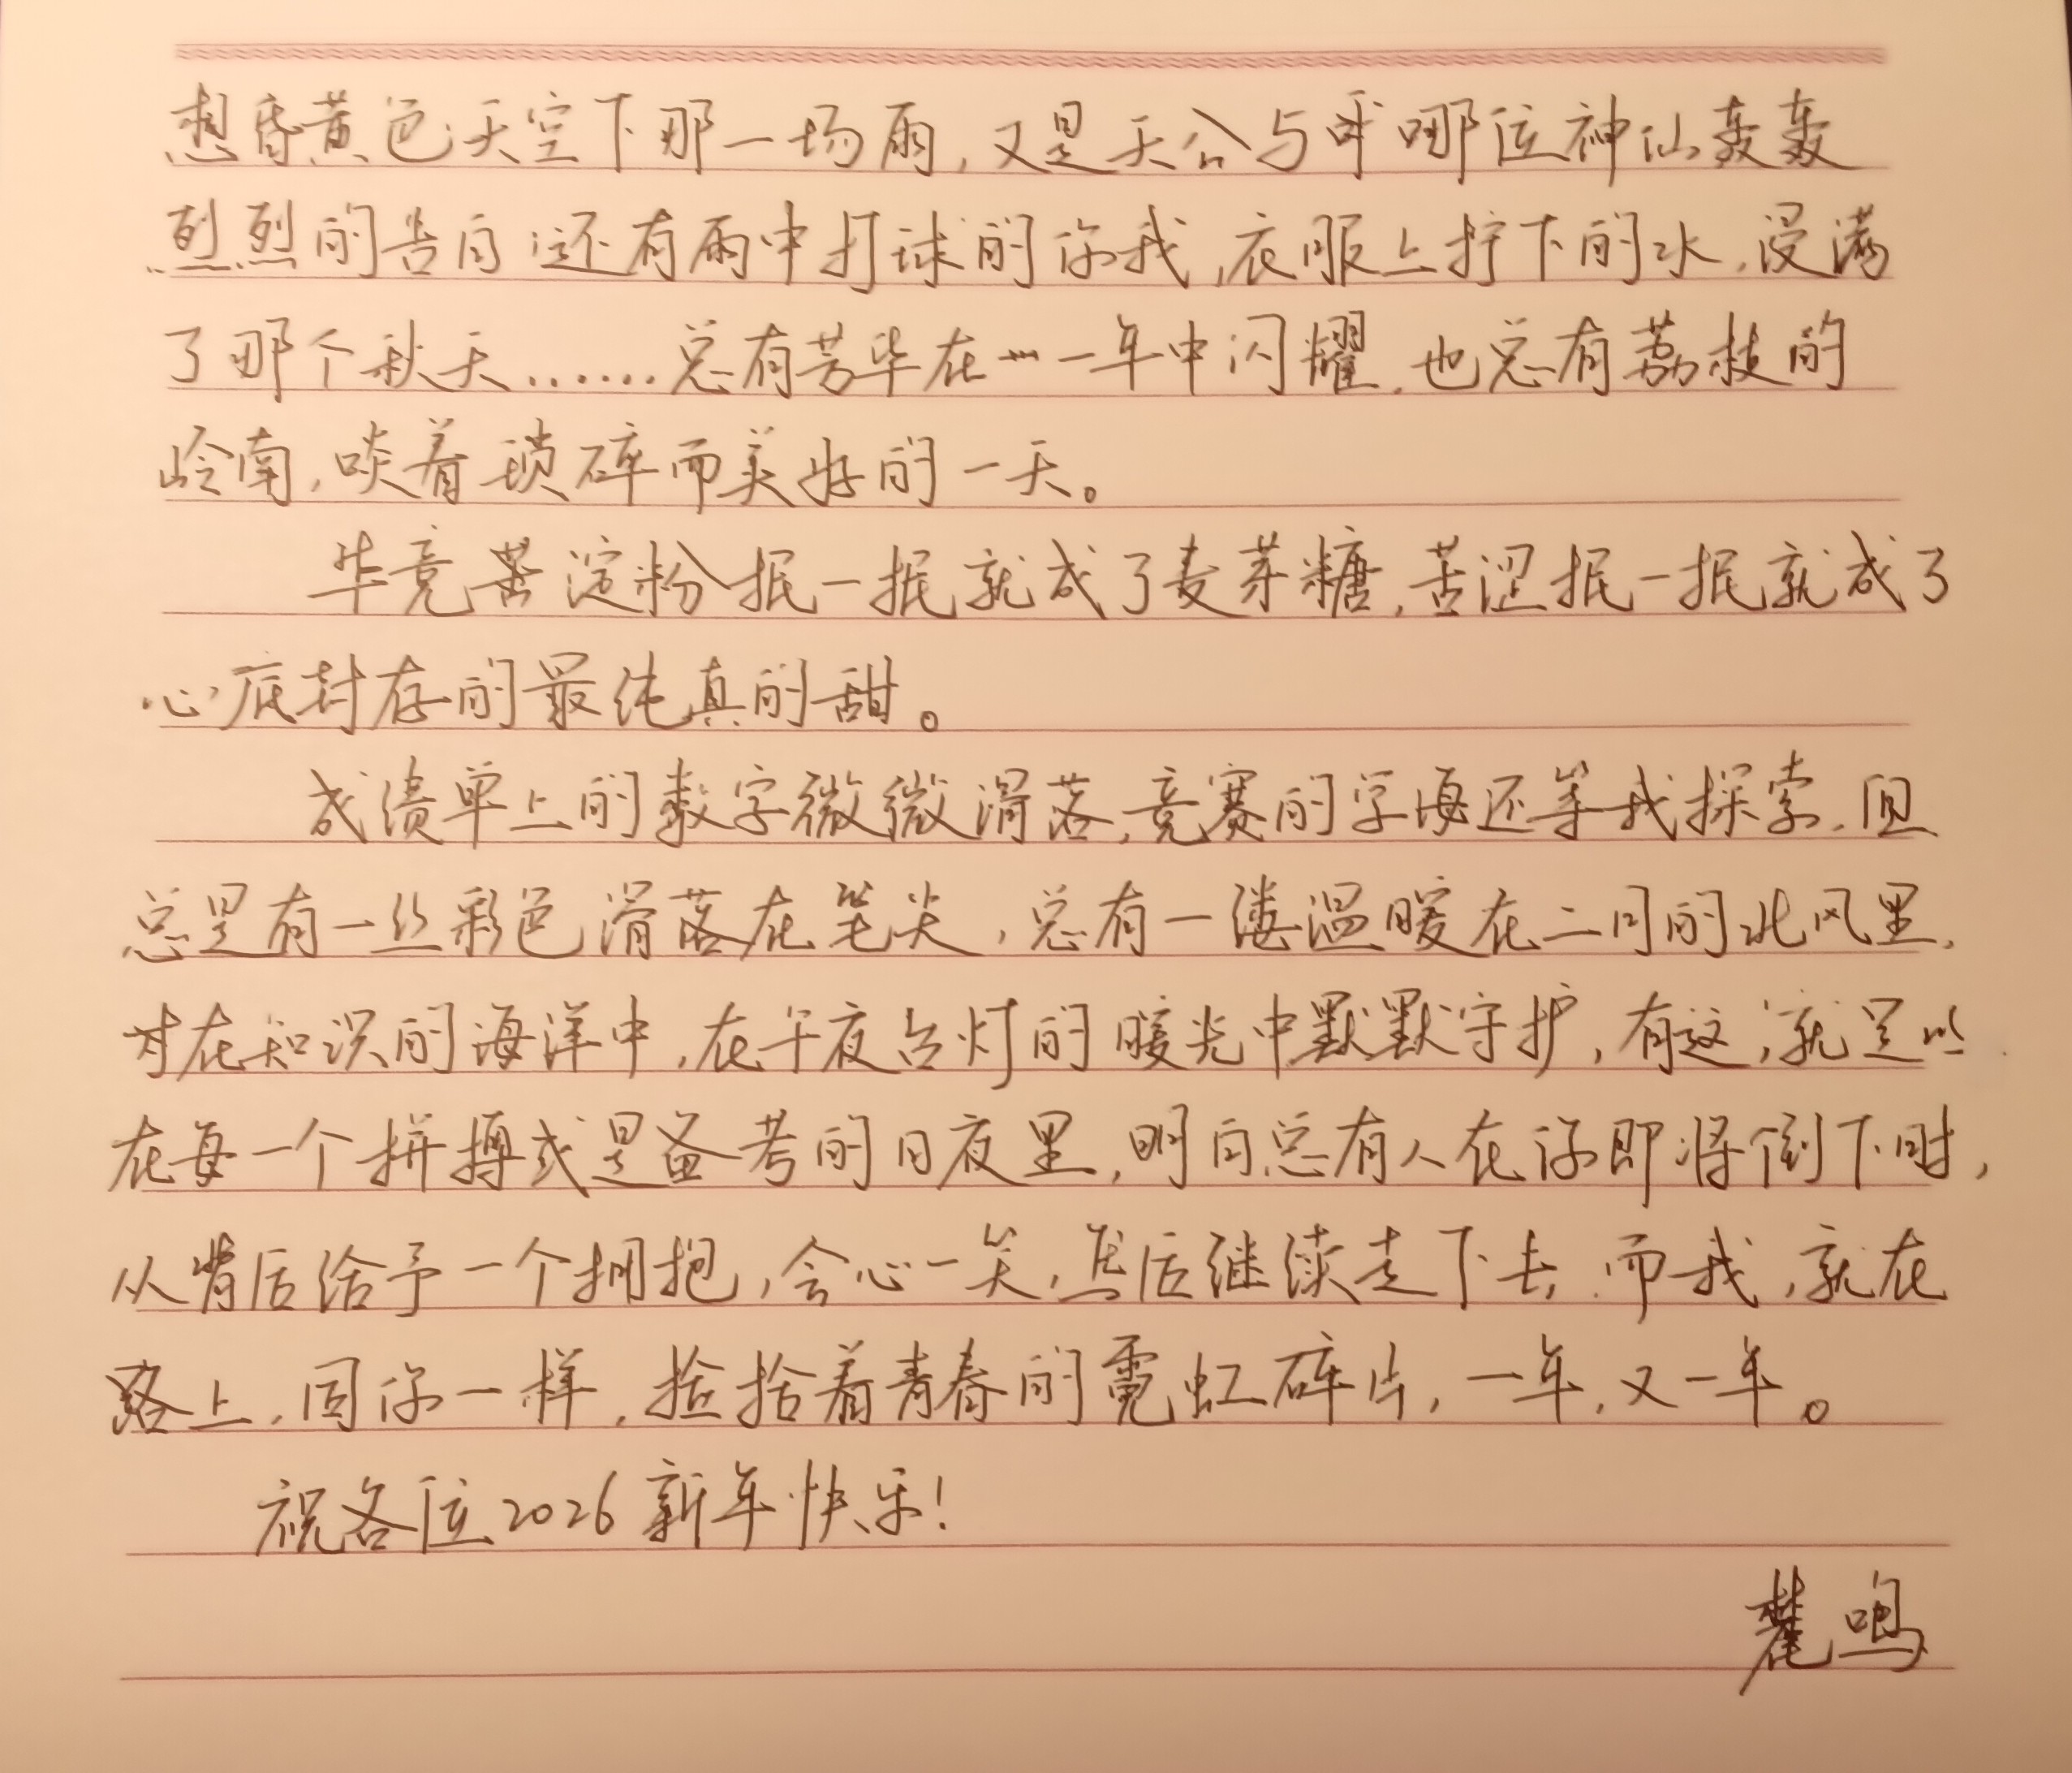 想昏黄色天空下那一场雨,又是天公与哪位神仙轰轰
烈烈的告白,还有雨中打球的你我,衣服上拧下的水,浸满
了那个秋天……总有芳华在一年中闪耀,也总有荔枝的
岭南,啖着琐碎而美好的一天。
毕竟淀粉抿一抿就成了麦芽糖,苦涩抿一抿就成了
心底封存的最纯真的甜。
成绩单上的数字微微滑落,竞赛的学海还等我探索,但
总是有一丝彩色滑落在笔尖,总有一缕温暖在二月的北风里,
在知识的海洋中,在午夜台灯的暖光中默默守护,有这,就足以
在每一个拼搏或是备考的日夜里,明白总有人在你即将倒下时,
从背后给予一个拥抱,会心一笑,然后继续走下去,而我,就在
路上,同你一样,捡拾着青春的霓虹碎片,一年,又一年。
祝各位2026新年快乐!
麓鸣